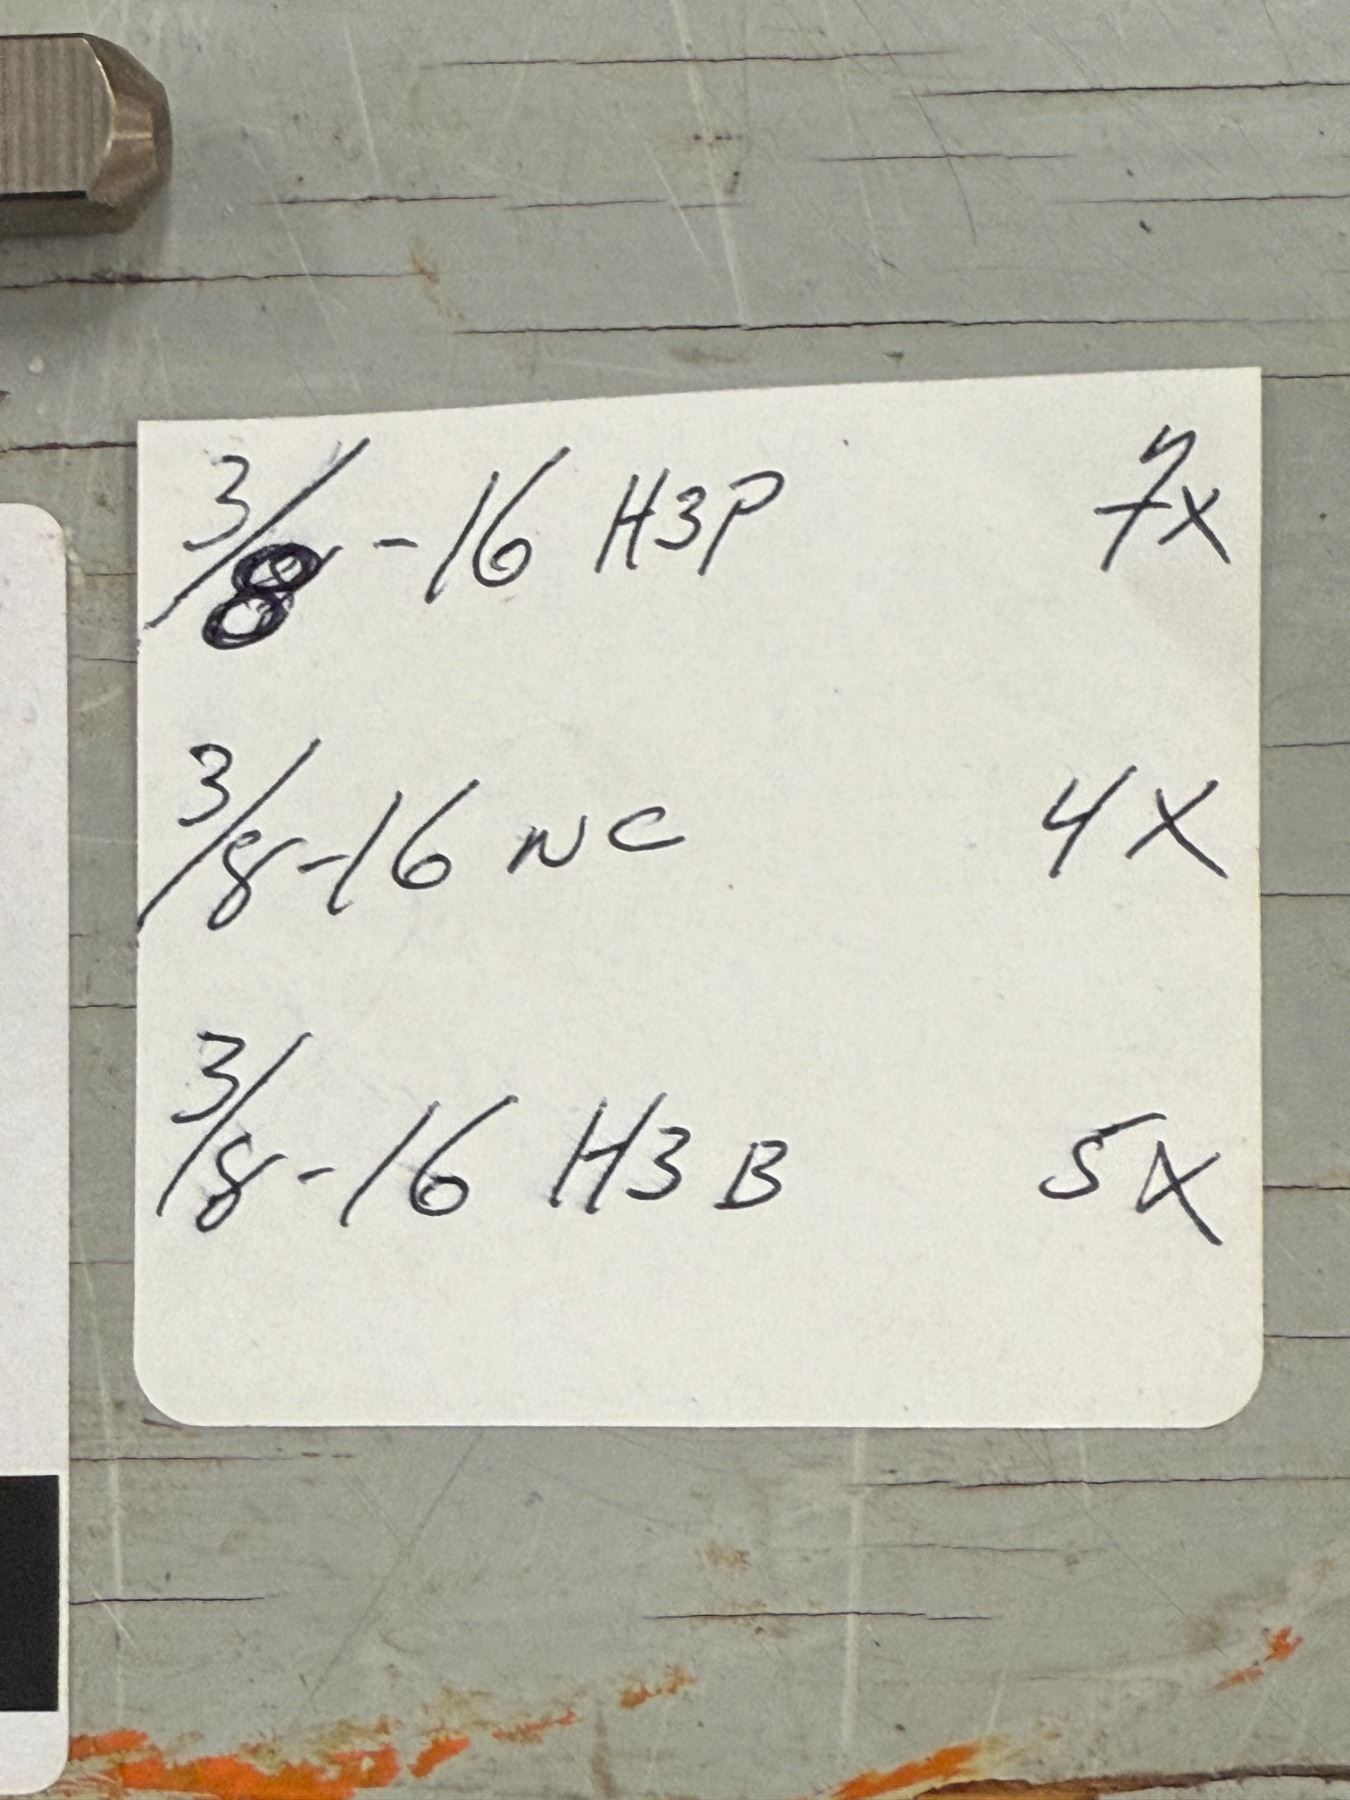 3/8-16 H3P 7x
3/8-16 NC 4X
3/8-16 H3B 5X